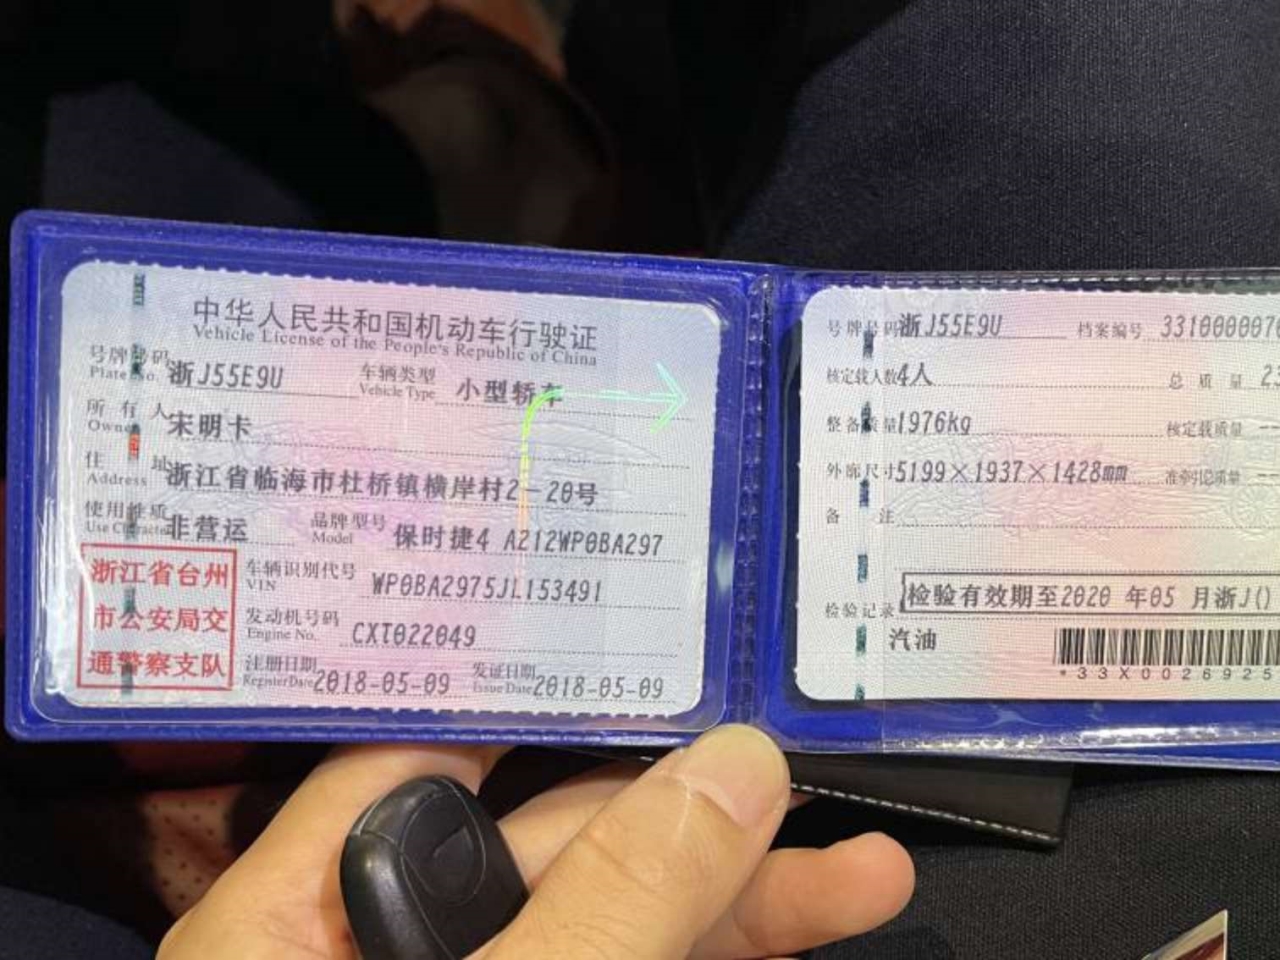 中华人民共和国机动车行驶证
Vehicle License of the People's Republic of China
号牌号码 浙J55E9U 车辆类型 小型轿车
Plate No. Vehicle Type
所有人 宋明卡
Owner
住址 浙江省临海市杜桥镇横岸村2-20号
Address
使用性质 非营运 品牌型号 保时捷4 A212WP0BA297
Use Character Model
浙江省台州
市公安局交
通警察支队
车辆识别代号 WP0BA2975JL153491
VIN
发动机号码 CXT022049
Engine No.
注册日期 2018-05-09 发证日期 2018-05-09
Register Date Issue Date
号牌号码 浙J55E9U 档案编号 3310000070
核定载人数 4人 总质量 23
整备质量 1976kg 核定载质量 --
外廓尺寸 5199×1937×1428mm 准牵引总质量 --
备注
检验记录 检验有效期至2020 年05 月浙J()
汽油
*33X0026925